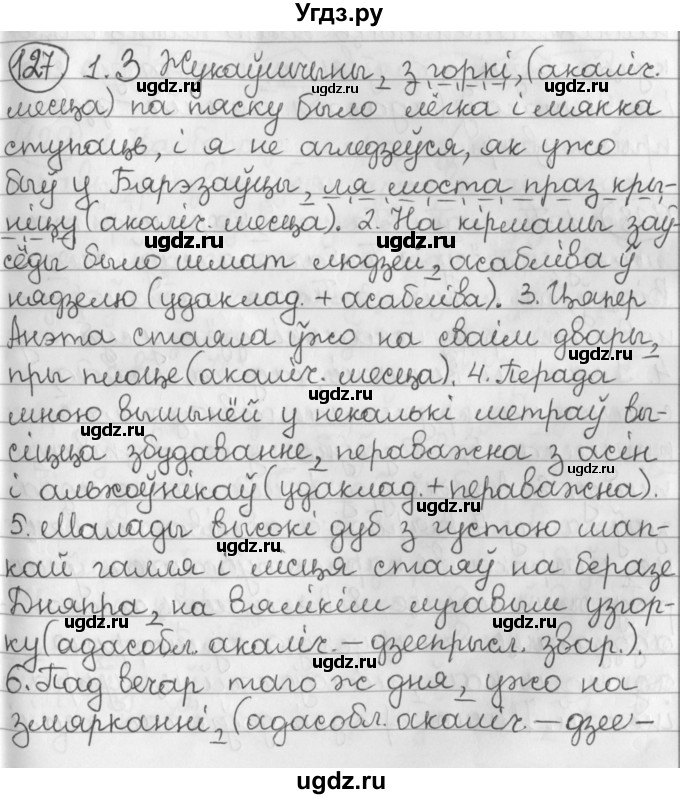 Угдз.ру
127 1. З Жукаўшчыны, з горкі, (акаліч.
месца) па пяску было лёгка і мякка
ступаць, і я не агледзеўся, як ужо
быў у Бярэзаўцы, ля моста праз кры-
ніцу (акаліч. месца). 2. На кірмашы заў-
сёды было шмат людзей, асабліва ў
нядзелю (удаклад. + асабліва). 3. Цяпер
Анэта стаяла ўжо на сваім двары,
пры плоце (акаліч. месца). 4. Перада
мною вышынёй у некалькі метраў вы-
сіцца збудаванне, пераважна з асін
і альхоўнікаў (удаклад. + пераважна).
5. Малады высокі дуб з густою шап-
кай галля і лісця стаяў на беразе
Дняпра, на вялікім муравым узгор-
ку (адасобл. акаліч. – дзеепрысл. звар.).
6. Пад вечар таго ж дня, ужо на
змярканні, (адасобл. акаліч. – дзее-
ugdz.ru